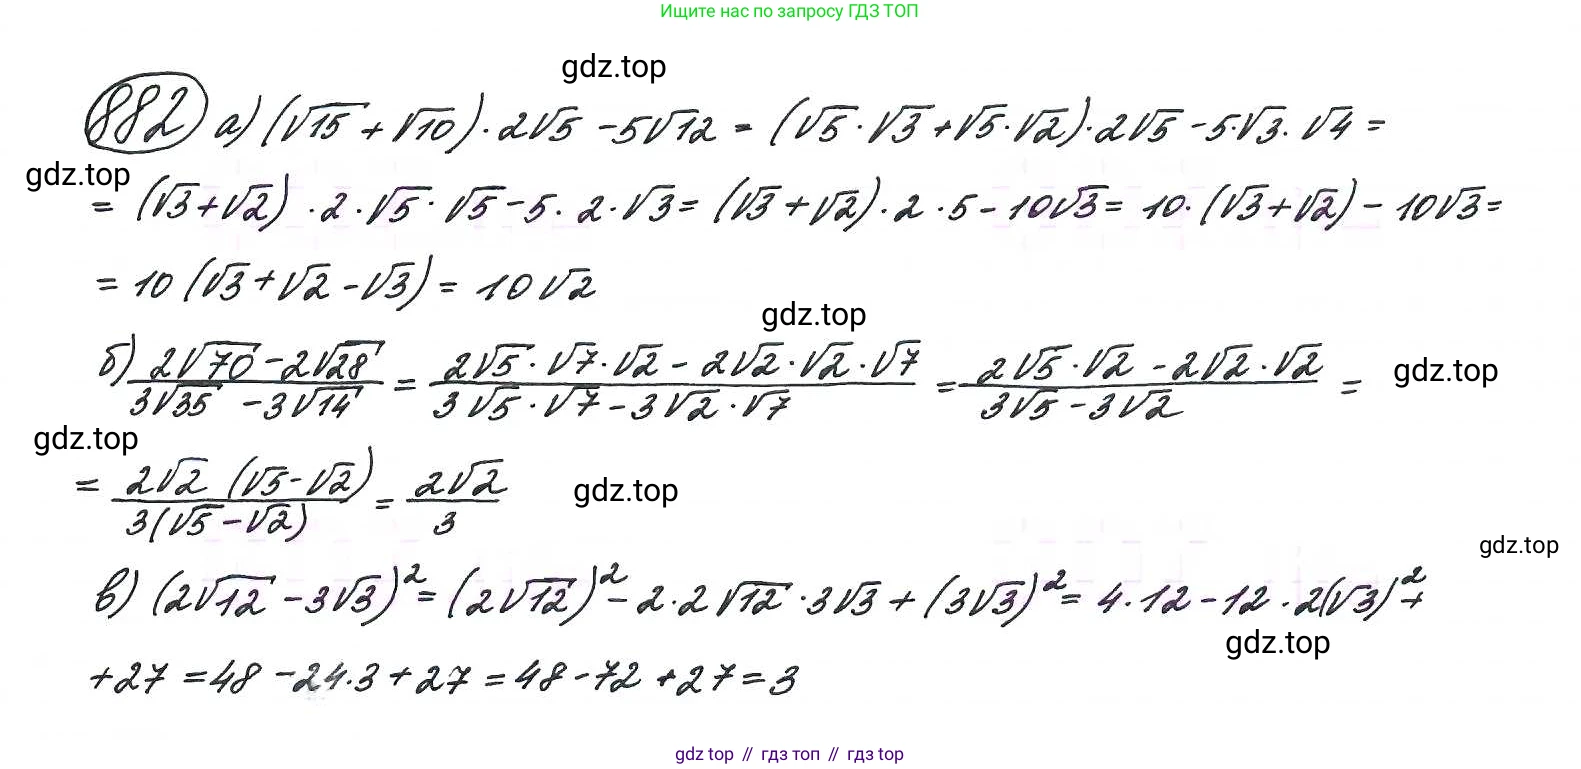 Ищите нас по запросу ГДЗ ТОП
gdz.top
882 а) (√15 + √10) · 2√5 - 5√12 = (√5 · √3 + √5 · √2) · 2√5 - 5 · √3 · √4 =
gdz.top
= (√3 + √2) · 2 · √5 · √5 - 5 · 2 · √3 = (√3 + √2) · 2 · 5 - 10√3 = 10 · (√3 + √2) - 10√3 =
= 10 (√3 + √2 - √3) = 10√2
gdz.top
б) (2√70 - 2√28)/(3√35 - 3√14) = (2√5 · √7 · √2 - 2√2 · √2 · √7)/(3√5 · √7 - 3√2 · √7) = (2√5 · √2 - 2√2 · √2)/(3√5 - 3√2) =
gdz.top
gdz.top
= (2√2 (√5 - √2))/(3(√5 - √2)) = 2√2/3
gdz.top
gdz.top
в) (2√12 - 3√3)² = (2√12)² - 2 · 2√12 · 3√3 + (3√3)² = 4 · 12 - 12 · 2(√3)² +
gdz.top
+ 27 = 48 - 24 · 3 + 27 = 48 - 72 + 27 = 3
gdz top // гдз топ // гдз top